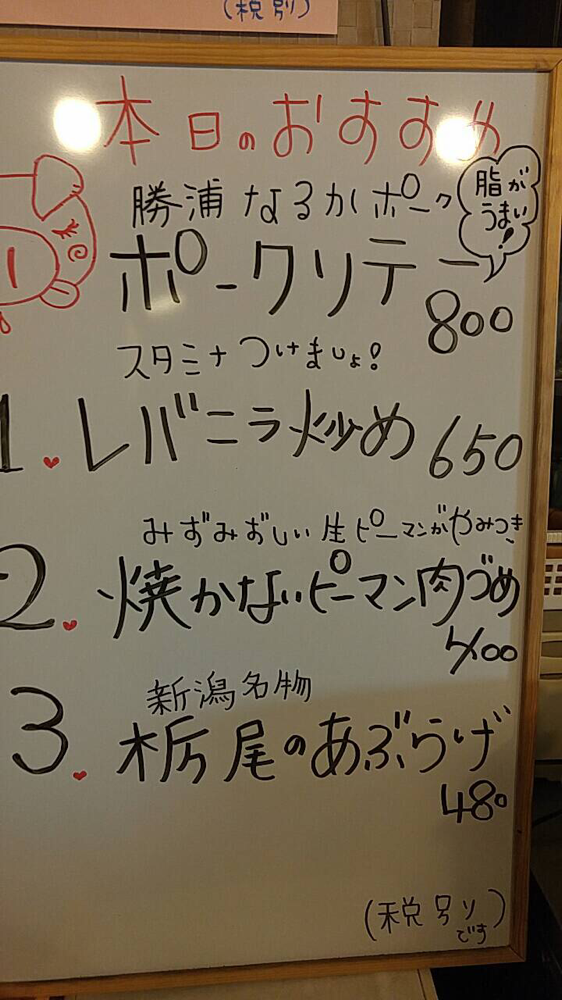 (税別)
本日のおすすめ
勝浦なるかポーク
脂が
うまい!
ポークソテー
800
スタミナつけましょ!
1. レバニラ炒め 650
みずみずしい生ピーマンがやみつき
2. 焼かないピーマン肉づめ
400
新潟名物
3. 栃尾のあぶらげ
480
(税別りです)